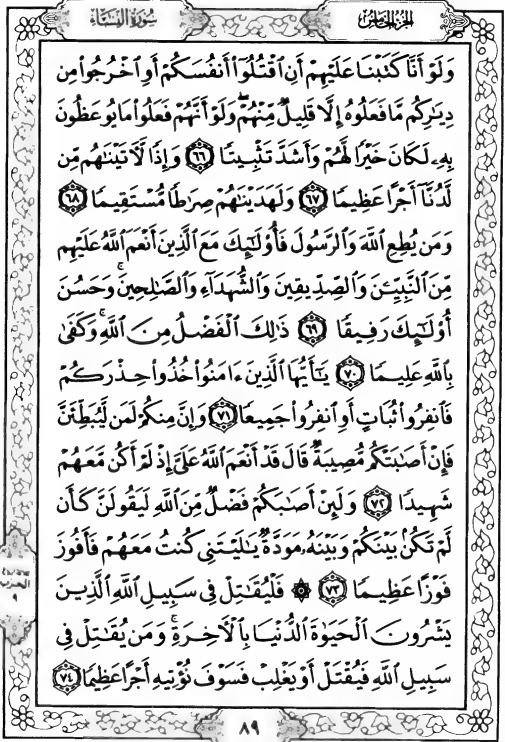 سُورَةُ النِّسَاءِ
الجُزْءُ الخَامِسُ
وَلَوْ أَنَّا كَتَبْنَا عَلَيْهِمْ أَنِ ٱقْتُلُوٓا۟ أَنفُسَكُمْ أَوِ ٱخْرُجُوا۟ مِن
دِيَـٰرِكُم مَّا فَعَلُوهُ إِلَّا قَلِيلٌ مِّنْهُمْ ۖ وَلَوْ أَنَّهُمْ فَعَلُوا۟ مَا يُوعَظُونَ
بِهِۦ لَكَانَ خَيْرًا لَّهُمْ وَأَشَدَّ تَثْبِيتًا ٦٦ وَإِذًا لَّـَٔاتَيْنَـٰهُم مِّن
لَّدُنَّآ أَجْرًا عَظِيمًا ٦٧ وَلَهَدَيْنَـٰهُمْ صِرَٰطًا مُّسْتَقِيمًا ٦٨
وَمَن يُطِعِ ٱللَّهَ وَٱلرَّسُولَ فَأُو۟لَـٰٓئِكَ مَعَ ٱلَّذِينَ أَنْعَمَ ٱللَّهُ عَلَيْهِم
مِّنَ ٱلنَّبِيِّـۧنَ وَٱلصِّدِّيقِينَ وَٱلشُّهَدَآءِ وَٱلصَّـٰلِحِينَ ۚ وَحَسُنَ
أُو۟لَـٰٓئِكَ رَفِيقًا ٦٩ ذَٰلِكَ ٱلْفَضْلُ مِنَ ٱللَّهِ ۚ وَكَفَىٰ
بِٱللَّهِ عَلِيمًا ٧٠ يَـٰٓأَيُّهَا ٱلَّذِينَ ءَامَنُوا۟ خُذُوا۟ حِذْرَكُمْ
فَٱنفِرُوا۟ ثُبَاتٍ أَوِ ٱنفِرُوا۟ جَمِيعًا ٧١ وَإِنَّ مِنكُمْ لَمَن لَّيُبَطِّئَنَّ
فَإِنْ أَصَـٰبَتْكُم مُّصِيبَةٌ قَالَ قَدْ أَنْعَمَ ٱللَّهُ عَلَىَّ إِذْ لَمْ أَكُن مَّعَهُمْ
شَهِيدًا ٧٢ وَلَئِنْ أَصَـٰبَكُمْ فَضْلٌ مِّنَ ٱللَّهِ لَيَقُولَنَّ كَأَن
لَّمْ تَكُنۢ بَيْنَكُمْ وَبَيْنَهُۥ مَوَدَّةٌ يَـٰلَيْتَنِى كُنتُ مَعَهُمْ فَأَفُوزَ
فَوْزًا عَظِيمًا ٧٣ ۞ فَلْيُقَـٰتِلْ فِى سَبِيلِ ٱللَّهِ ٱلَّذِينَ
يَشْرُونَ ٱلْحَيَوٰةَ ٱلدُّنْيَا بِٱلْـَٔاخِرَةِ ۚ وَمَن يُقَـٰتِلْ فِى
سَبِيلِ ٱللَّهِ فَيُقْتَلْ أَوْ يَغْلِبْ فَسَوْفَ نُؤْتِيهِ أَجْرًا عَظِيمًا ٧٤
الحزب
٩
٨٩